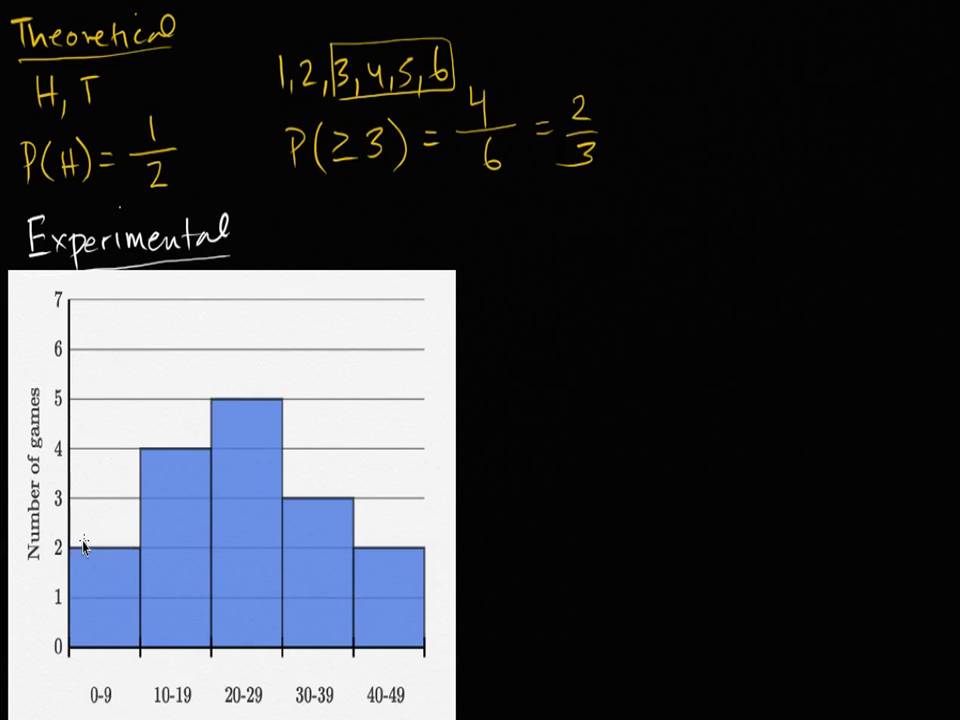 Theoretical
H, T
P(H) = 1/2
1, 2, 3, 4, 5, 6
P(≥3) = 4/6 = 2/3
Experimental
Number of games
7
6
5
4
3
2
1
0
0-9 10-19 20-29 30-39 40-49